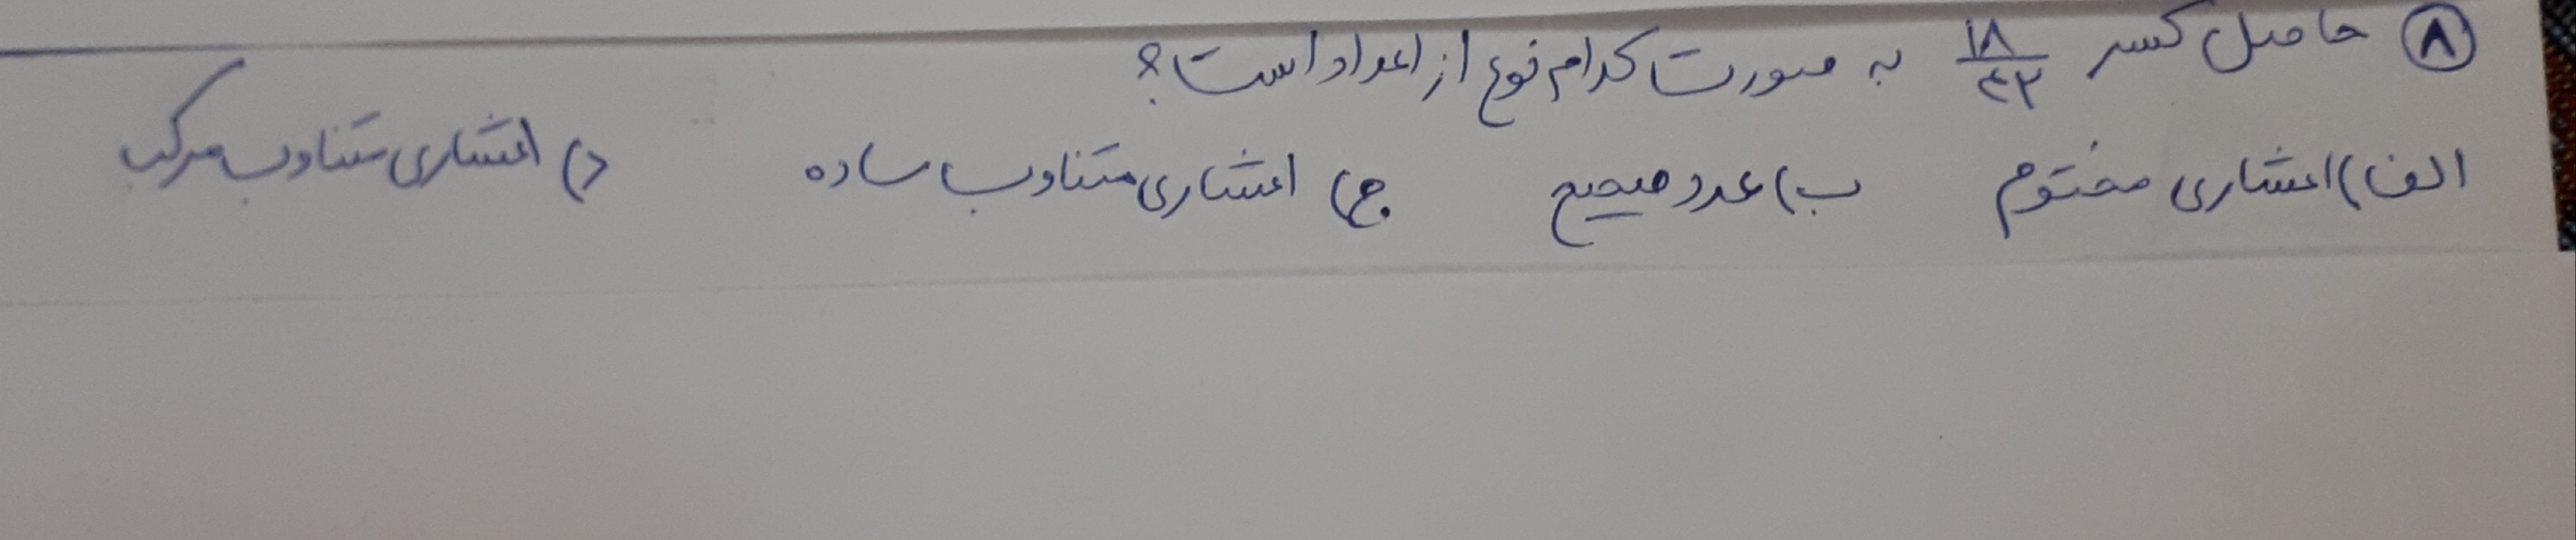 ۸ حاصل کسر ۱۸/۴۲ به صورت کدام نوع از اعداد است؟
الف) اعشاری مختوم ب) عدد صحیح ج) اعشاری متناوب ساده د) اعشاری متناوب مرکب